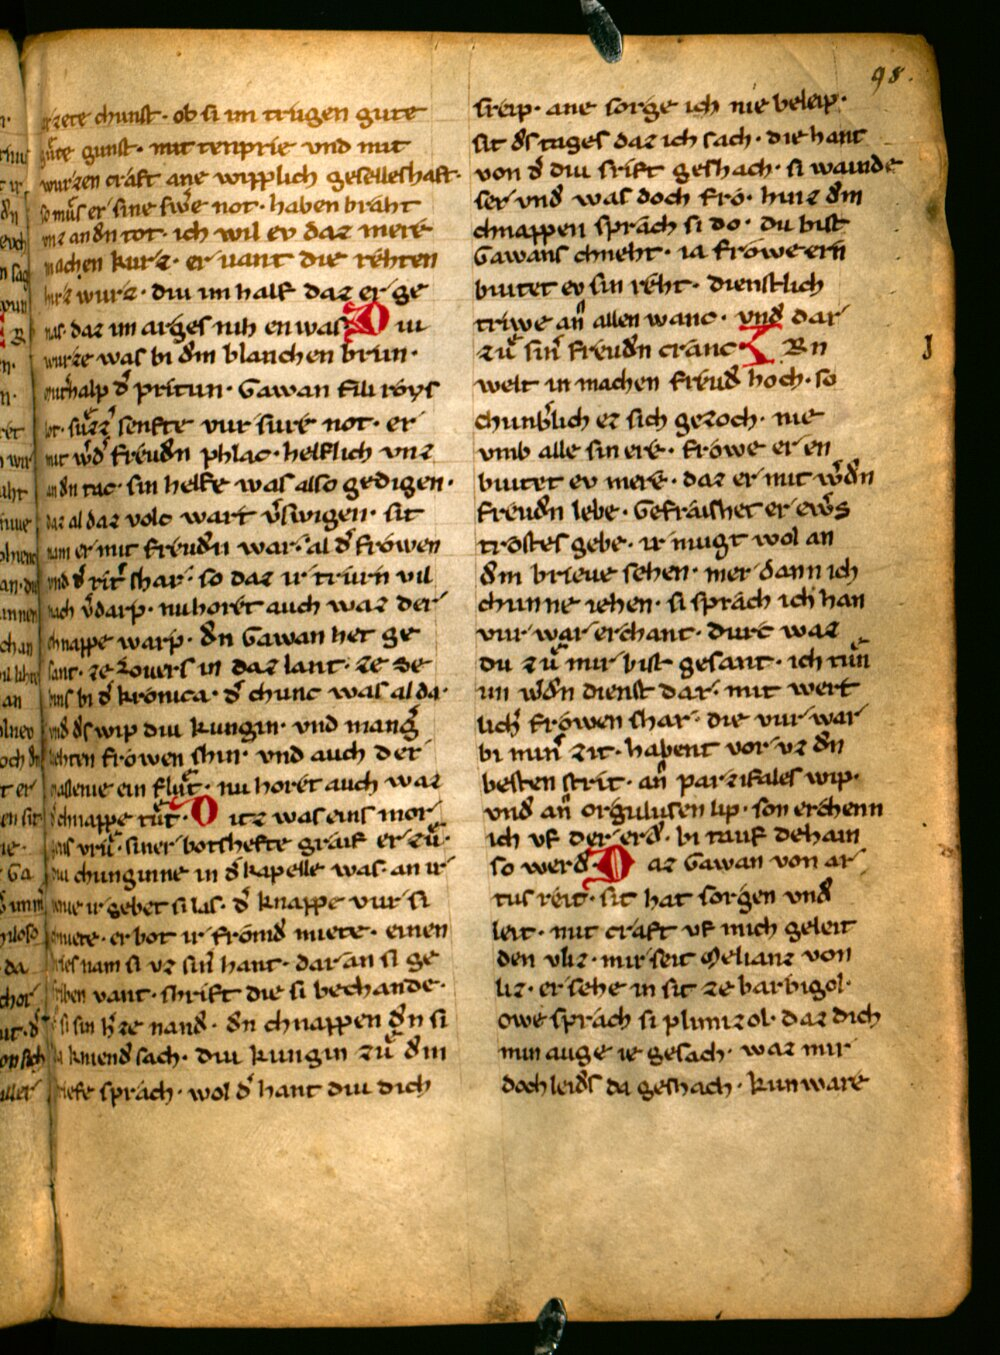 98.
erzete chunst · ob si im trůgen gute
gůte gunst · mit tenprie vnd mit
wurzen craft ane wipplich geselleshaft ·
so můs er sine swe not · haben braht
unz an dn tot · ich wil ev daz mere
machen kurz · er vant die rehten
hirz wurz · diu im half daz er ge
nas · daz im arges nih en was · Diu
wurze was bi dem blanchen brun ·
innerhalp der pritun · Gawan fili roys
lot · senfte vur sure not · er
mit freuden phlac · helflich unz
an dn tac · sin helfe was also gedigen ·
daz al daz volc wart v̓swigen · sit
nam er mit freuden war · al d̓ frowen
vnd d̓ rit̓ shar · so daz ir trurn vil
nach v̓darp · nu horet auch waz der
chnappe warp · den Gawan het ge
sant · ze lovers in daz lant · ze be
ms bi d̓ kronica · d̓ chunc was al da ·
vnd des wip diu kungin · vnd mang̓
liehten frowen shin · vnd auch der
massenie ein flůt · nu horet auch waz
d̓ chnappe tůt · Ditz was eins mor
gens vrů · siner botshefte graif er zů ·
diu chunginne in d̓ kapelle was · an ir
venie ir gebet si las · d̓ knappe vur si
chniete · er bot ir fromd miete · einen
brief nam si vz sin̓ hant · dar an si ge
shriben vant · shrift die si bechande ·
e si sin h̓ze nand · dn chnappen dn si
da kniend sach · diu kungin zů dem
briefe sprach · wol d̓ hant diu dich
sreip · ane sorge ich nie beleip ·
sit des tages daz ich sach · die hant
von d̓ diu srift geshach · si wainde
ser vnd was doch fro · hinz dem
chnappen sprach si do · du bist
Gawans chneht · ia frowe ern
biutet ev sin reht · dienstlich
triwe an̓ allen wanc · vnd dar
zů sin̓ freuden cranc · Ern
welt in machen freud hoch · so
chunb̓lich ez sich gezoch · nie
vmb alle sin ere · frowe er en
biutet ev mere · daz er mit w̓den
freuden lebe · Gefraishet er ew̓s
trostes gebe · ir mugt wol an
dem brieve sehen · mer dann ich
chunne iehen · si sprach ich han
vur war erchant · durc waz
du zů mir bist gesant · ich tůn
im w̓den dienst dar · mit wert
lich̓ frowen shar · die vur war
bi min̓ zit · habent vor vz den
besten strit · an̓ parzifales wip ·
vnd an̓ orgulusen lip · son erchenn
ich vf der erd · bi tauf dehain
so werd · Daz Gawan von ar
tus reit · sit hat sorgen vnd
leit · mit craft vf mich geleit
den vliz · mir seit Melianz von
liz · er sehe in sit ze barbigol ·
owe sprach si plimizol · daz dich
min auge ie gesach · waz mir
doch leides da geshach · kunware